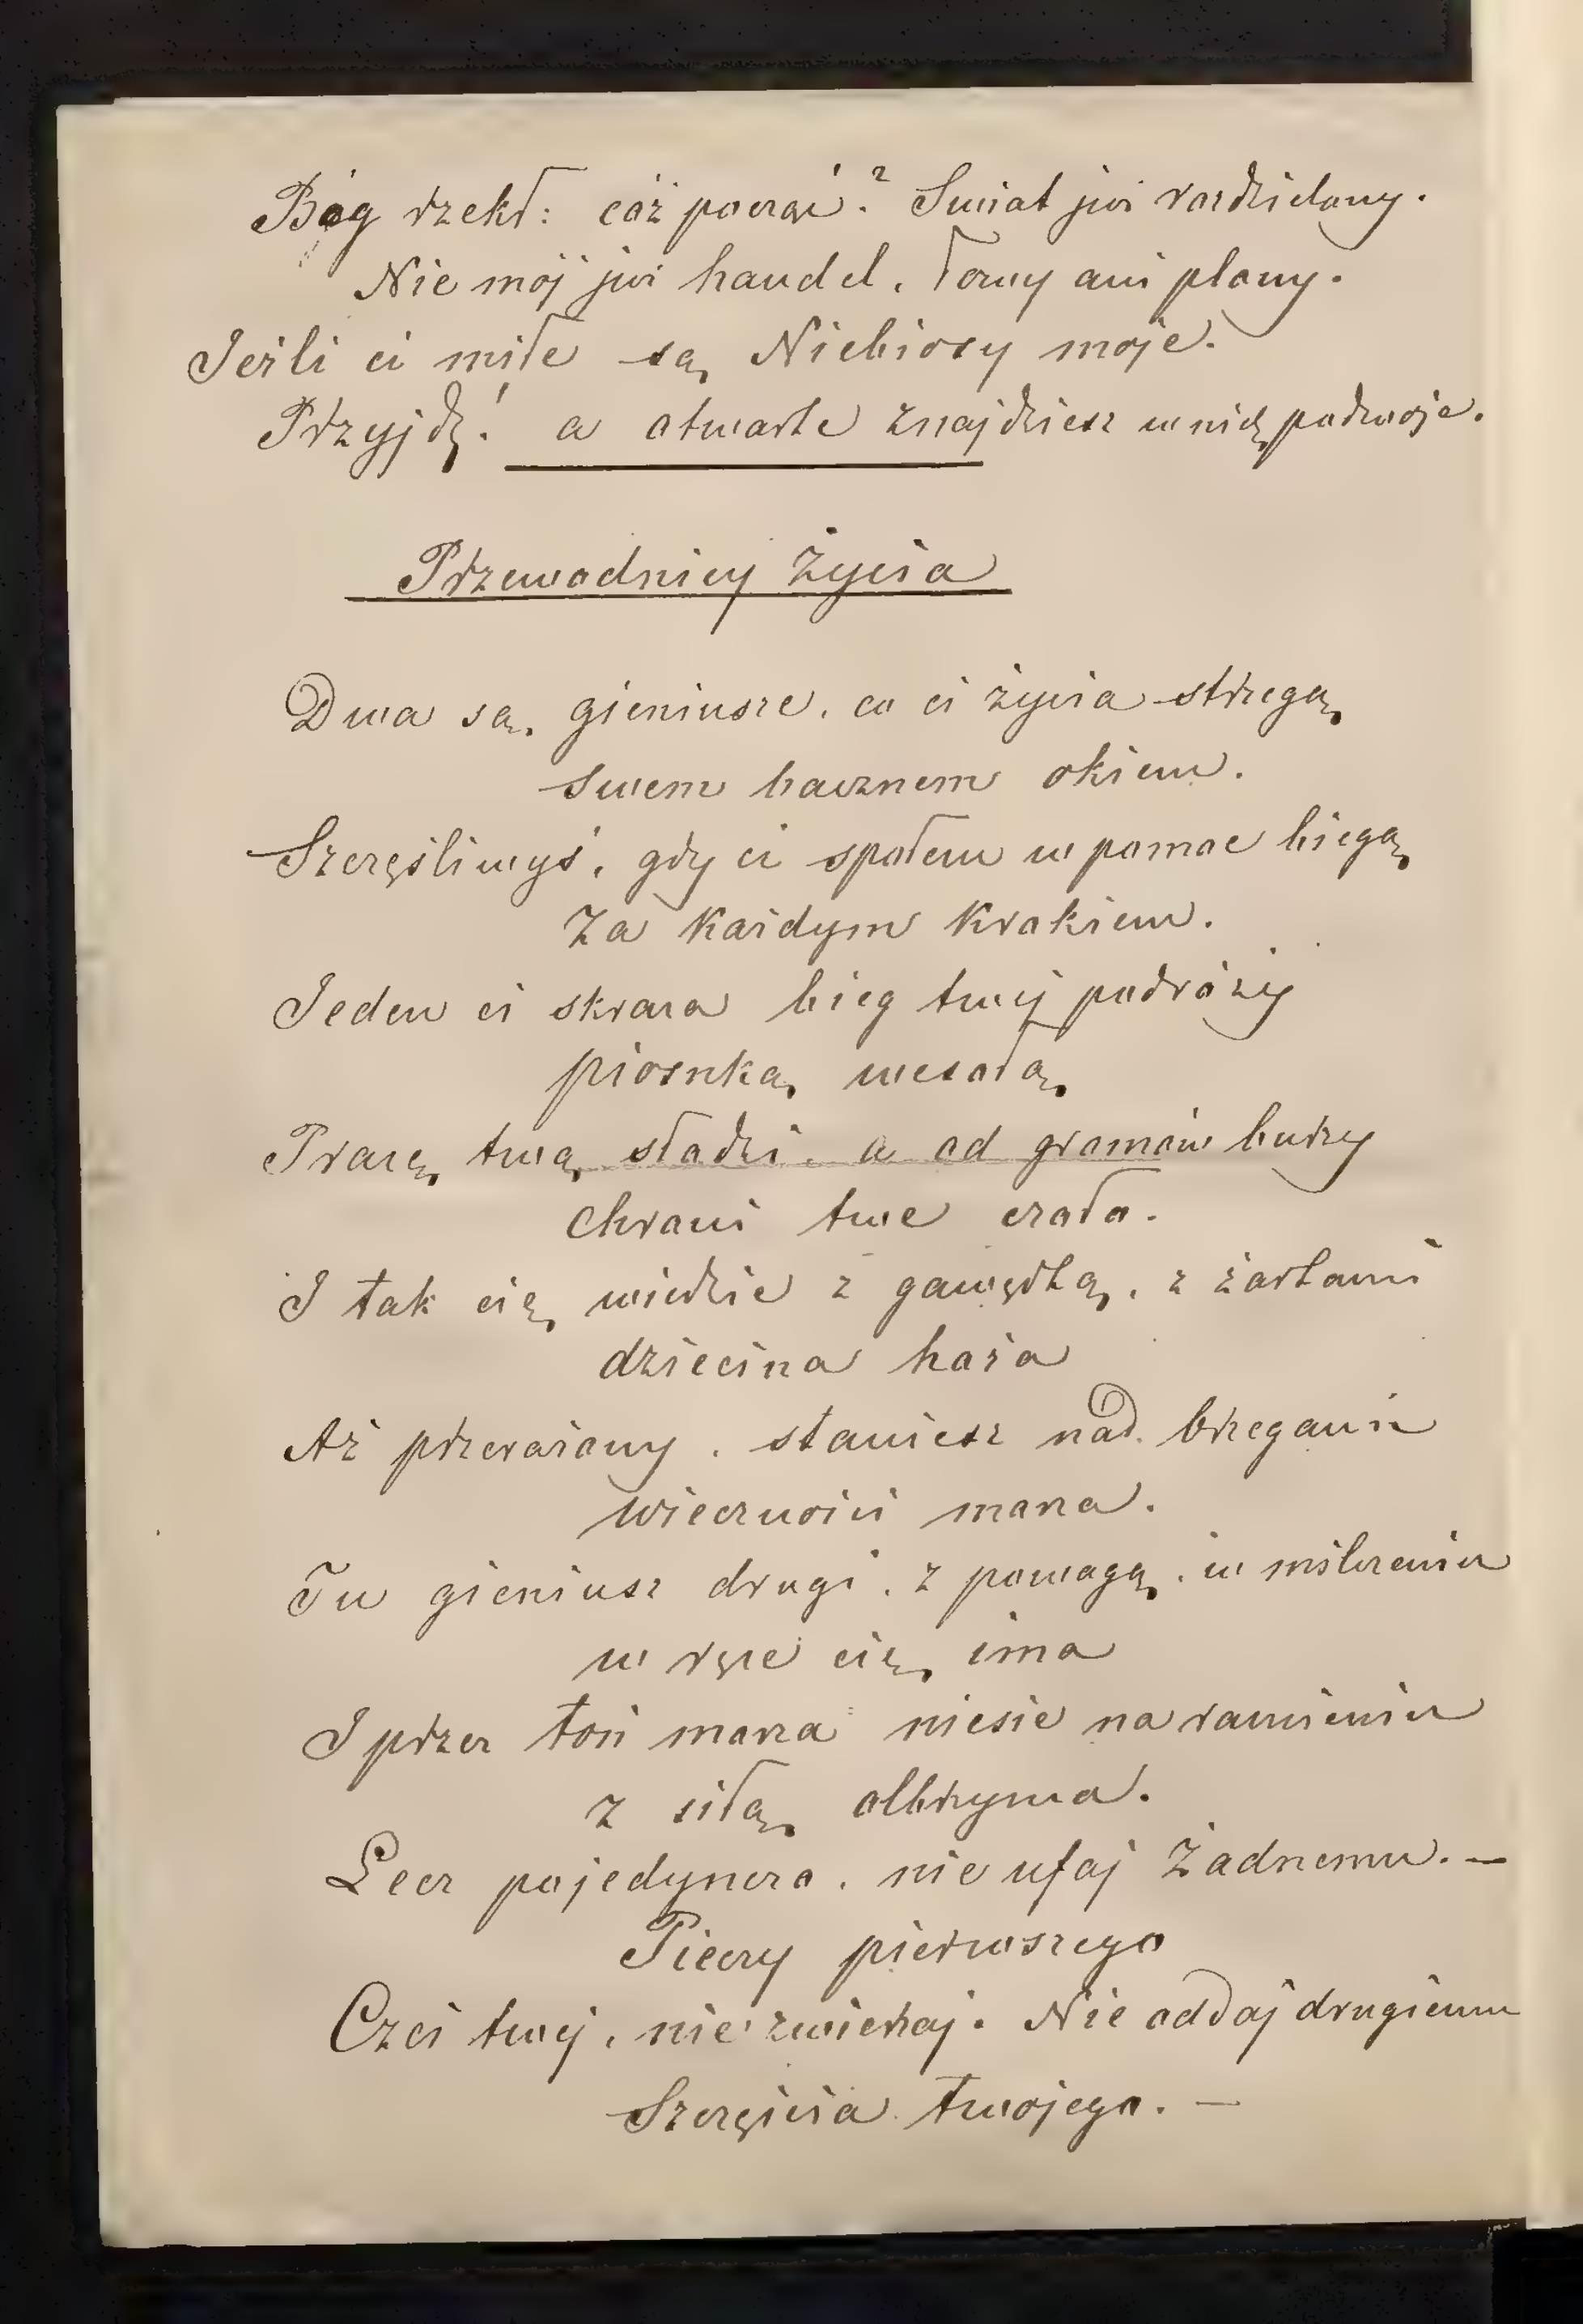 Bóg rzekł: cóż począć? Swiat już rozdzielony.
Nie mój już handel, łowy ani plony.
Jeżli ci miłe są Niebiosy moje.
Przyjdź! a otwarte znajdziesz w nich podwoje.
Przewodnicy Życia
Dwa są, gieniusze, co ci życia strzegą
swem bacznem okiem.
Szczęśliwyś, gdy ci społem w pomoc biegą
Za każdym krokiem.
Jeden ci skraca bieg twej podróży
piosnką wesołą
Pracę twą słodzi, a od gromów burzy
chroni twe czoło.
I tak cię wiedzie z gawędką, z żartami
dziecina hoża
Aż przerażony, staniesz nad brzegami
wieczności morza.
Tu gieniusz drugi, z powagą, w milczeniu
w ręce cię ima
I przez toń morza niesie na ramieniu
z siłą olbrzyma.
Lecz pojedynczo, nie ufaj Żadnemu. —
Pieczy pierwszego
Czci twej, nie zwierzaj. Nie oddaj drugiemu
Szczęścia twojego. —